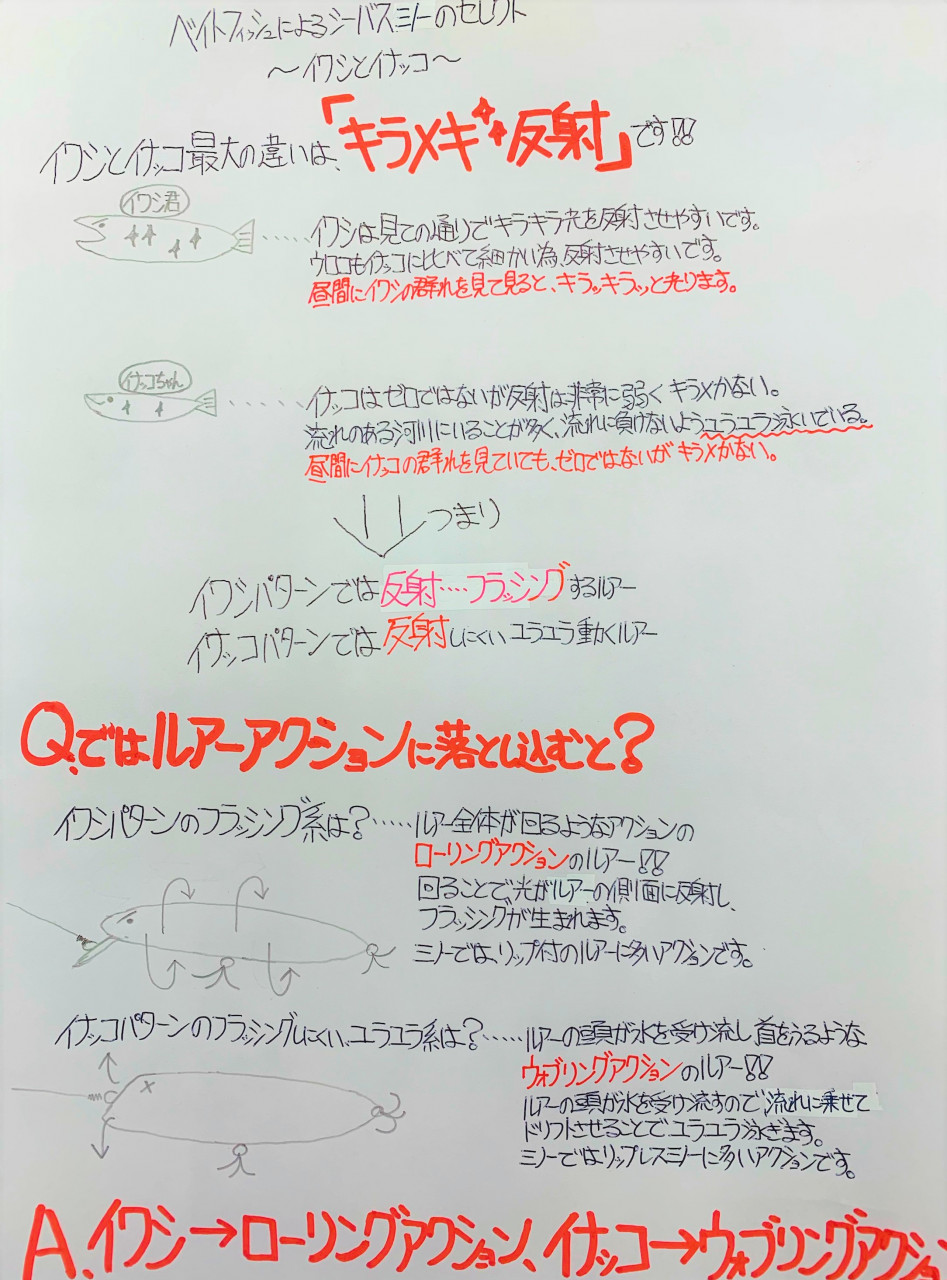 ベイトフィッシュによるシーバスミノーのセレクト
～イワシとイナッコ～
イワシとイナッコ最大の違いは、「キラメキ反射」です!!
イワシ君
イワシは見ての通りでキラキラ光を反射させやすいです。
ウロコもイナッコに比べて細かい為、反射させやすいです。
昼間にイワシの群れを見て見ると、キラッキラッと光ります。
イナッコちゃん
イナッコはゼロではないが反射は非常に弱くキラメかない。
流れのある河川にいることが多く、流れに負けないようユラユラ泳いでいる。
昼間にイナッコの群れを見ていても、ゼロではないがキラメかない。
つまり
イワシパターンでは反射‥‥フラッシングするルアー
イナッコパターンでは反射しにくいユラユラ動くルアー
Q.ではルアーアクションに落とし込むと?
イワシパターンのフラッシング系は?‥‥‥ルアー全体が回るようなアクションの
ローリングアクションのルアー!!
回ることで、光がルアーの側面に反射し、
フラッシングが生まれます。
ミノーでは、リップ付のルアーに多いアクションです。
イナッコパターンのフラッシングしにくい、ユラユラ系は?‥‥‥ルアーの頭が水を受け流し首をふるような
ウォブリングアクションのルアー!!
ルアーの頭が水を受け流すので、流れに乗せて
ドリフトさせることでユラユラ泳ぎます。
ミノーではリップレスミノーに多いアクションです。
A.イワシ→ローリングアクション、イナッコ→ウォブリングアクション